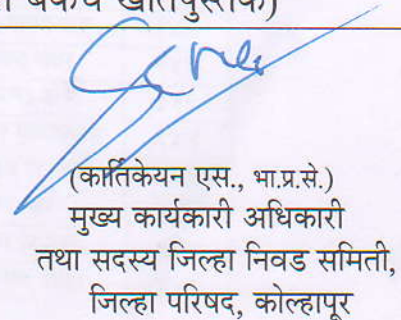 बँकेचे खातेपुस्तक)
(कार्तिकेयन एस., भा.प्र.से.)
मुख्य कार्यकारी अधिकारी
तथा सदस्य जिल्हा निवड समिती,
जिल्हा परिषद, कोल्हापूर